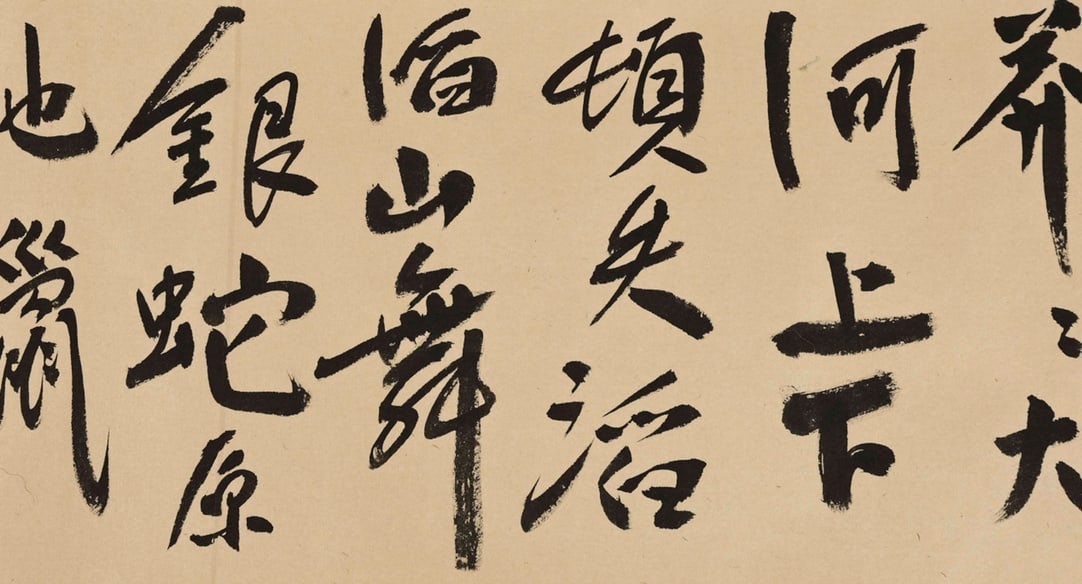 莽〻大
河上下
頓失滔
滔山舞
銀蛇原